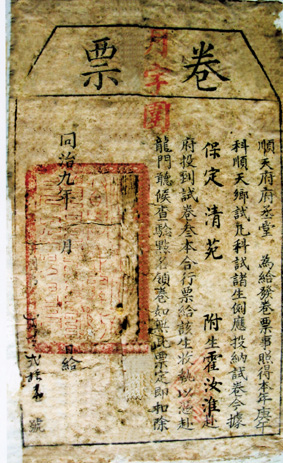 卷票
順天府府丞堂 為給發卷票事照得本年庚午
科順天鄉試凡科試諸生例應投納試卷今據
保定清苑 附生霍汝淮赴
府投到試卷叁本合行票給該生收執以憑赴
龍門聽候查驗點名領卷如無此票定即扣除
同治九年 月 日給
號